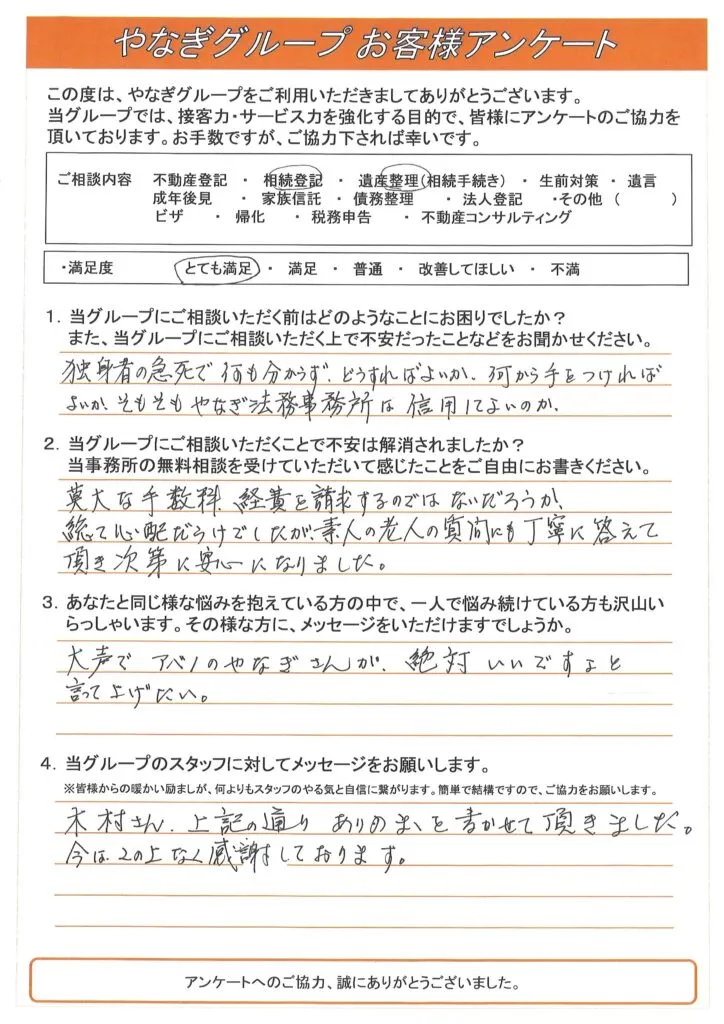 やなぎグループ お客様アンケート
この度は、やなぎグループをご利用いただきましてありがとうございます。
当グループでは、接客力・サービス力を強化する目的で、皆様にアンケートのご協力を
頂いております。お手数ですが、ご協力下されば幸いです。
ご相談内容 不動産登記 ・ 相続登記 ・ 遺産整理(相続手続き) ・ 生前対策 ・ 遺言
成年後見 ・ 家族信託 ・ 債務整理 ・ 法人登記 ・その他 ( )
ビザ ・ 帰化 ・ 税務申告 ・ 不動産コンサルティング
・満足度 とても満足 ・ 満足 ・ 普通 ・ 改善してほしい ・ 不満
1. 当グループにご相談いただく前はどのようなことにお困りでしたか?
また、当グループにご相談いただく上で不安だったことなどをお聞かせください。
独身者の急死で何も分からず、どうすればよいか、何から手をつければ
よいか、そもそもやなぎ法務事務所は信用してよいのか、
2. 当グループにご相談いただくことで不安は解消されましたか?
当事務所の無料相談を受けていただいて感じたことをご自由にお書きください。
莫大な手数料、経費を請求するのではないだろうか、
総て心配だらけでしたが、素人の老人の質問にも丁寧に答えて
頂き次第に安心になりました。
3. あなたと同じ様な悩みを抱えている方の中で、一人で悩み続けている方も沢山い
らっしゃいます。その様な方に、メッセージをいただけますでしょうか。
大声でアベノのやなぎさんが、絶対いいですよと
言って上げたい。
4. 当グループのスタッフに対してメッセージをお願いします。
※皆様からの暖かい励ましが、何よりもスタッフのやる気と自信に繋がります。簡単で結構ですので、ご協力をお願いします。
木村さん、上記の通りありのまゝを書かせて頂きました。
今は、この上なく感謝しております。
アンケートへのご協力、誠にありがとうございました。